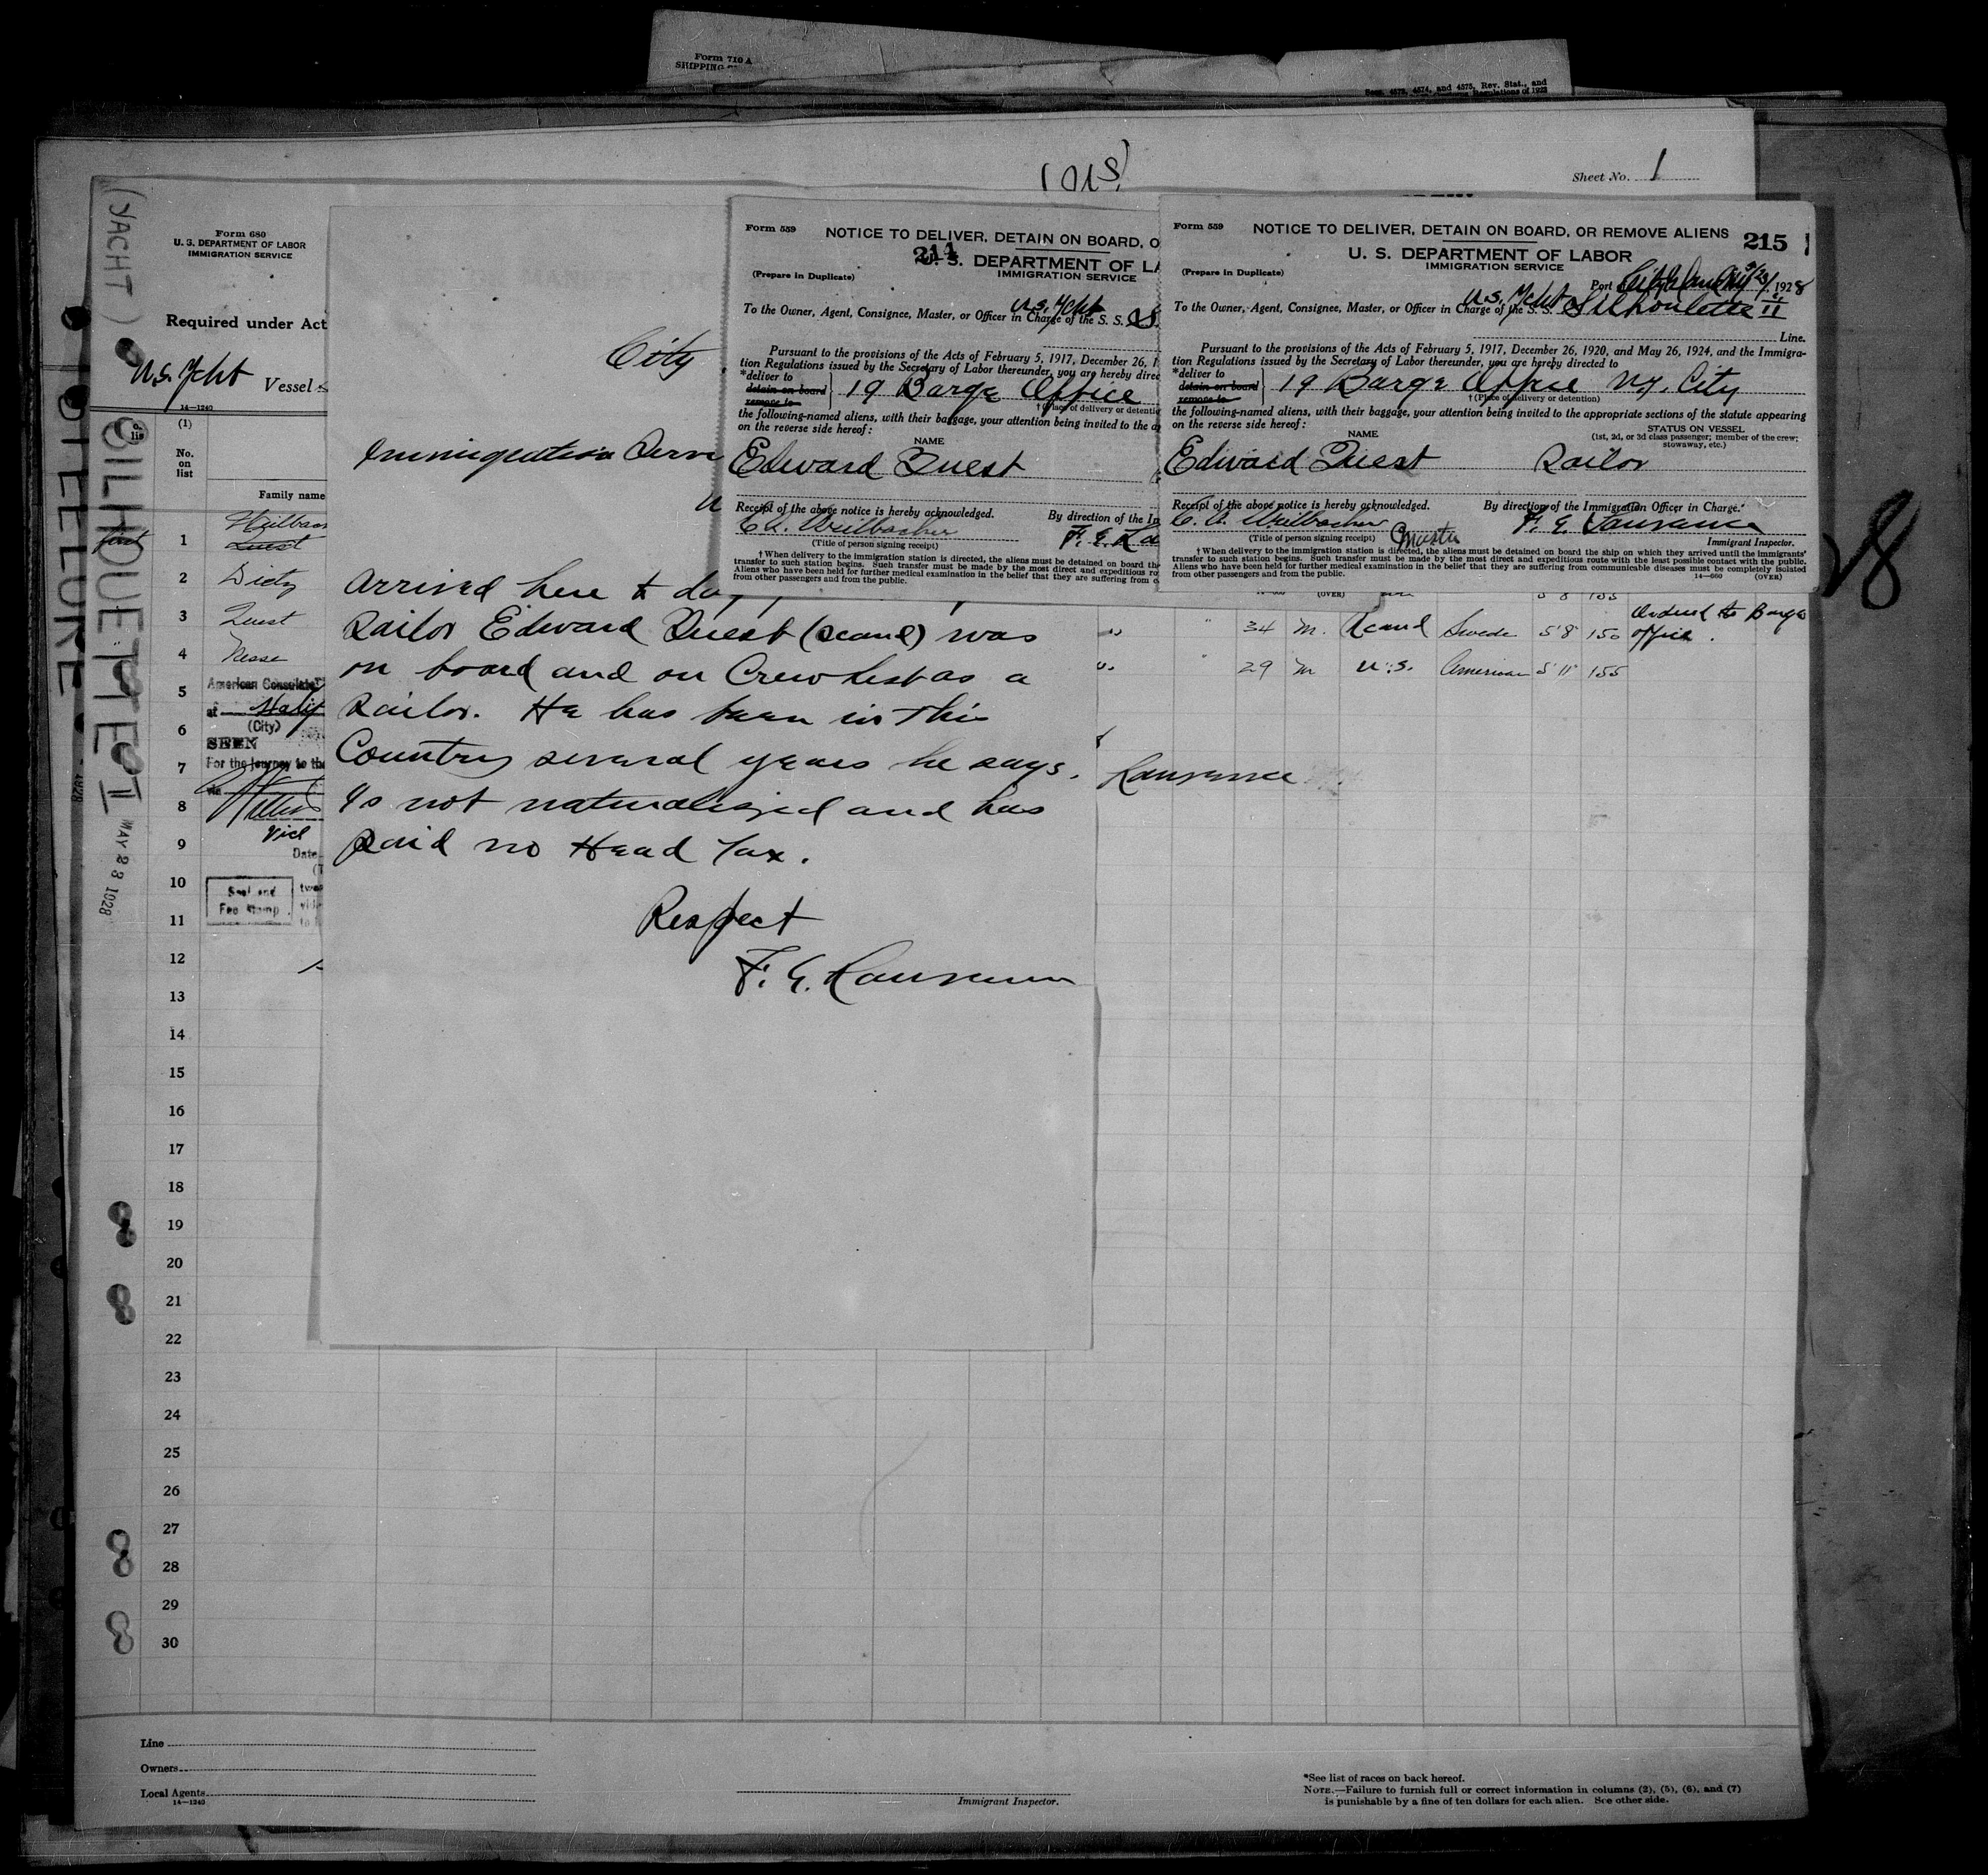 Form 710 A
SHIPPING
Secs. 4573, 4574, and 4575, Rev. Stat., and
Regulations of 1922
Sheet No. 1
(YACHT) SILHOUETTE II MAY 28 1928
Form 680
U. S. DEPARTMENT OF LABOR
IMMIGRATION SERVICE
Required under Act
U.S. Ycht Vessel
14—1240
(1)
No.
on
list
Family name
1
Quest
2 Dietz
3 Quest
4 Nesse
5 American Consulate
at
6 (City)
SEEN
7 For the journey to the
8
Vice
9 Date
10
Seal and
Fee Stamp
11
12
13
14
15
16
17
18
19
20
21
22
23
24
25
26
27
28
29
30
City
Immigration Serv
arrived here to day
Sailor Edward Quest (Scand) was
on board and on Crew List as a
Sailor. He has been in this
Country several years he says.
Is not naturalized and has
paid no Head Tax.
Respect
F. E. Laurance
Form 559
NOTICE TO DELIVER, DETAIN ON BOARD, O
214
U. S. DEPARTMENT OF LA
IMMIGRATION SERVICE
(Prepare in Duplicate)
U.S. Ycht
To the Owner, Agent, Consignee, Master, or Officer in Charge of the S. S.
Pursuant to the provisions of the Acts of February 5, 1917, December 26, 1
tion Regulations issued by the Secretary of Labor thereunder, you are hereby direc
*deliver to
detain on board
remove to
19 Barge Office
†(Place of delivery or detentio
the following-named aliens, with their baggage, your attention being invited to the a
on the reverse side hereof:
NAME
Edward Quest
Receipt of the above notice is hereby acknowledged.
By direction of the Im
C. A. Weilbacher
F. E. La
(Title of person signing receipt)
†When delivery to the immigration station is directed, the aliens must be detained on board th
transfer to such station begins. Such transfer must be made by the most direct and expeditious ro
Aliens who have been held for further medical examination in the belief that they are suffering from c
from other passengers and from the public.
Form 559
NOTICE TO DELIVER, DETAIN ON BOARD, OR REMOVE ALIENS
215
U. S. DEPARTMENT OF LABOR
IMMIGRATION SERVICE
(Prepare in Duplicate)
Port 5/28, 1928
To the Owner, Agent, Consignee, Master, or Officer in Charge of the S. S. U.S. Ycht Silhouette II
Line.
Pursuant to the provisions of the Acts of February 5, 1917, December 26, 1920, and May 26, 1924, and the Immigra-
tion Regulations issued by the Secretary of Labor thereunder, you are hereby directed to
*deliver to
detain on board
remove to
19 Barge Office N.Y. City
†(Place of delivery or detention)
the following-named aliens, with their baggage, your attention being invited to the appropriate sections of the statute appearing
on the reverse side hereof:
NAME
STATUS ON VESSEL
(1st, 2d, or 3d class passenger; member of the crew;
stowaway, etc.)
Edward Quest Sailor
Receipt of the above notice is hereby acknowledged.
By direction of the Immigration Officer in Charge.
C. A. Weilbacher Master
F. E. Laurance
(Title of person signing receipt)
Immigrant Inspector.
†When delivery to the immigration station is directed, the aliens must be detained on board the ship on which they arrived until the immigrants'
transfer to such station begins. Such transfer must be made by the most direct and expeditious route with the least possible contact with the public.
Aliens who have been held for further medical examination in the belief that they are suffering from communicable diseases must be completely isolated
from other passengers and from the public.
14—660 (OVER)
(OVER)
5 8 155
34 M. Scand Swede 5'8" 150 Ordered to Barge
office.
29 M U.S. American 5'11" 155
Laurance
Line
Owners
Local Agents
14—1240
Immigrant Inspector.
*See list of races on back hereof.
NOTE.—Failure to furnish full or correct information in columns (2), (5), (6), and (7)
is punishable by a fine of ten dollars for each alien. See other side.